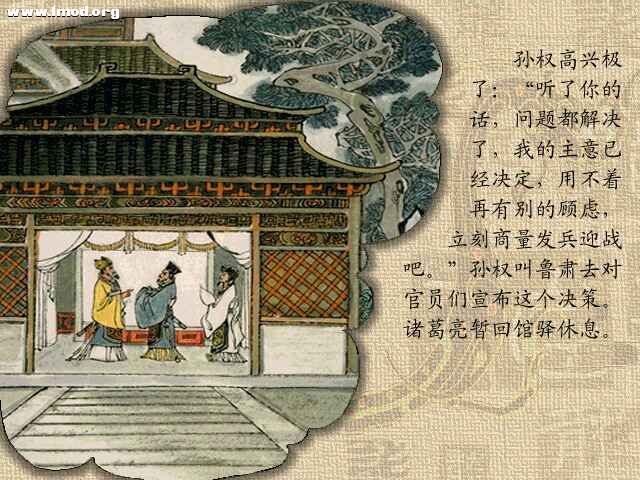 www.1mod.org
孙权高兴极
了：“听了你的
话，问题都解决
了，我的主意已
经决定，用不着
再有别的顾虑，
立刻商量发兵迎战
吧。”孙权叫鲁肃去对
官员们宣布这个决策。
诸葛亮暂回馆驿休息。